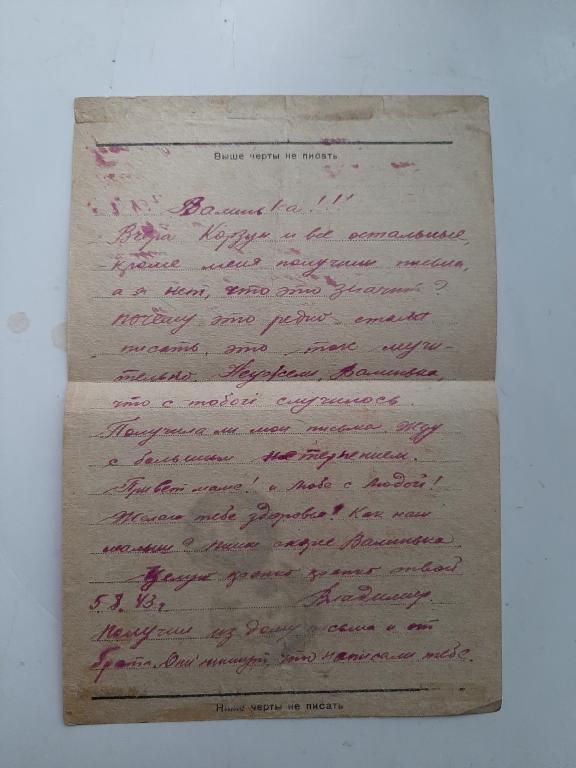 Выше черты не писать
Валинька!!!
Вчера Корзун и все остальные,
кроме меня получили письма,
а я нет, что это значит?
Почему это редко стала
писать, это так мучи-
тельно. Неужели, Валинька,
что с тобой случилось.
Получила ли мои письма. Жду
с большим нетерпением.
Привет маме! и Любе с Людой!
Желаю тебе здоровья! Как наш
малыш? пиши скорее Валинька
Целую крепко крепко твой
5.8.43 г Владимир.
Получил из дому письма и от
брата. Они пишут, что написали тебе.
Ниже черты не писать